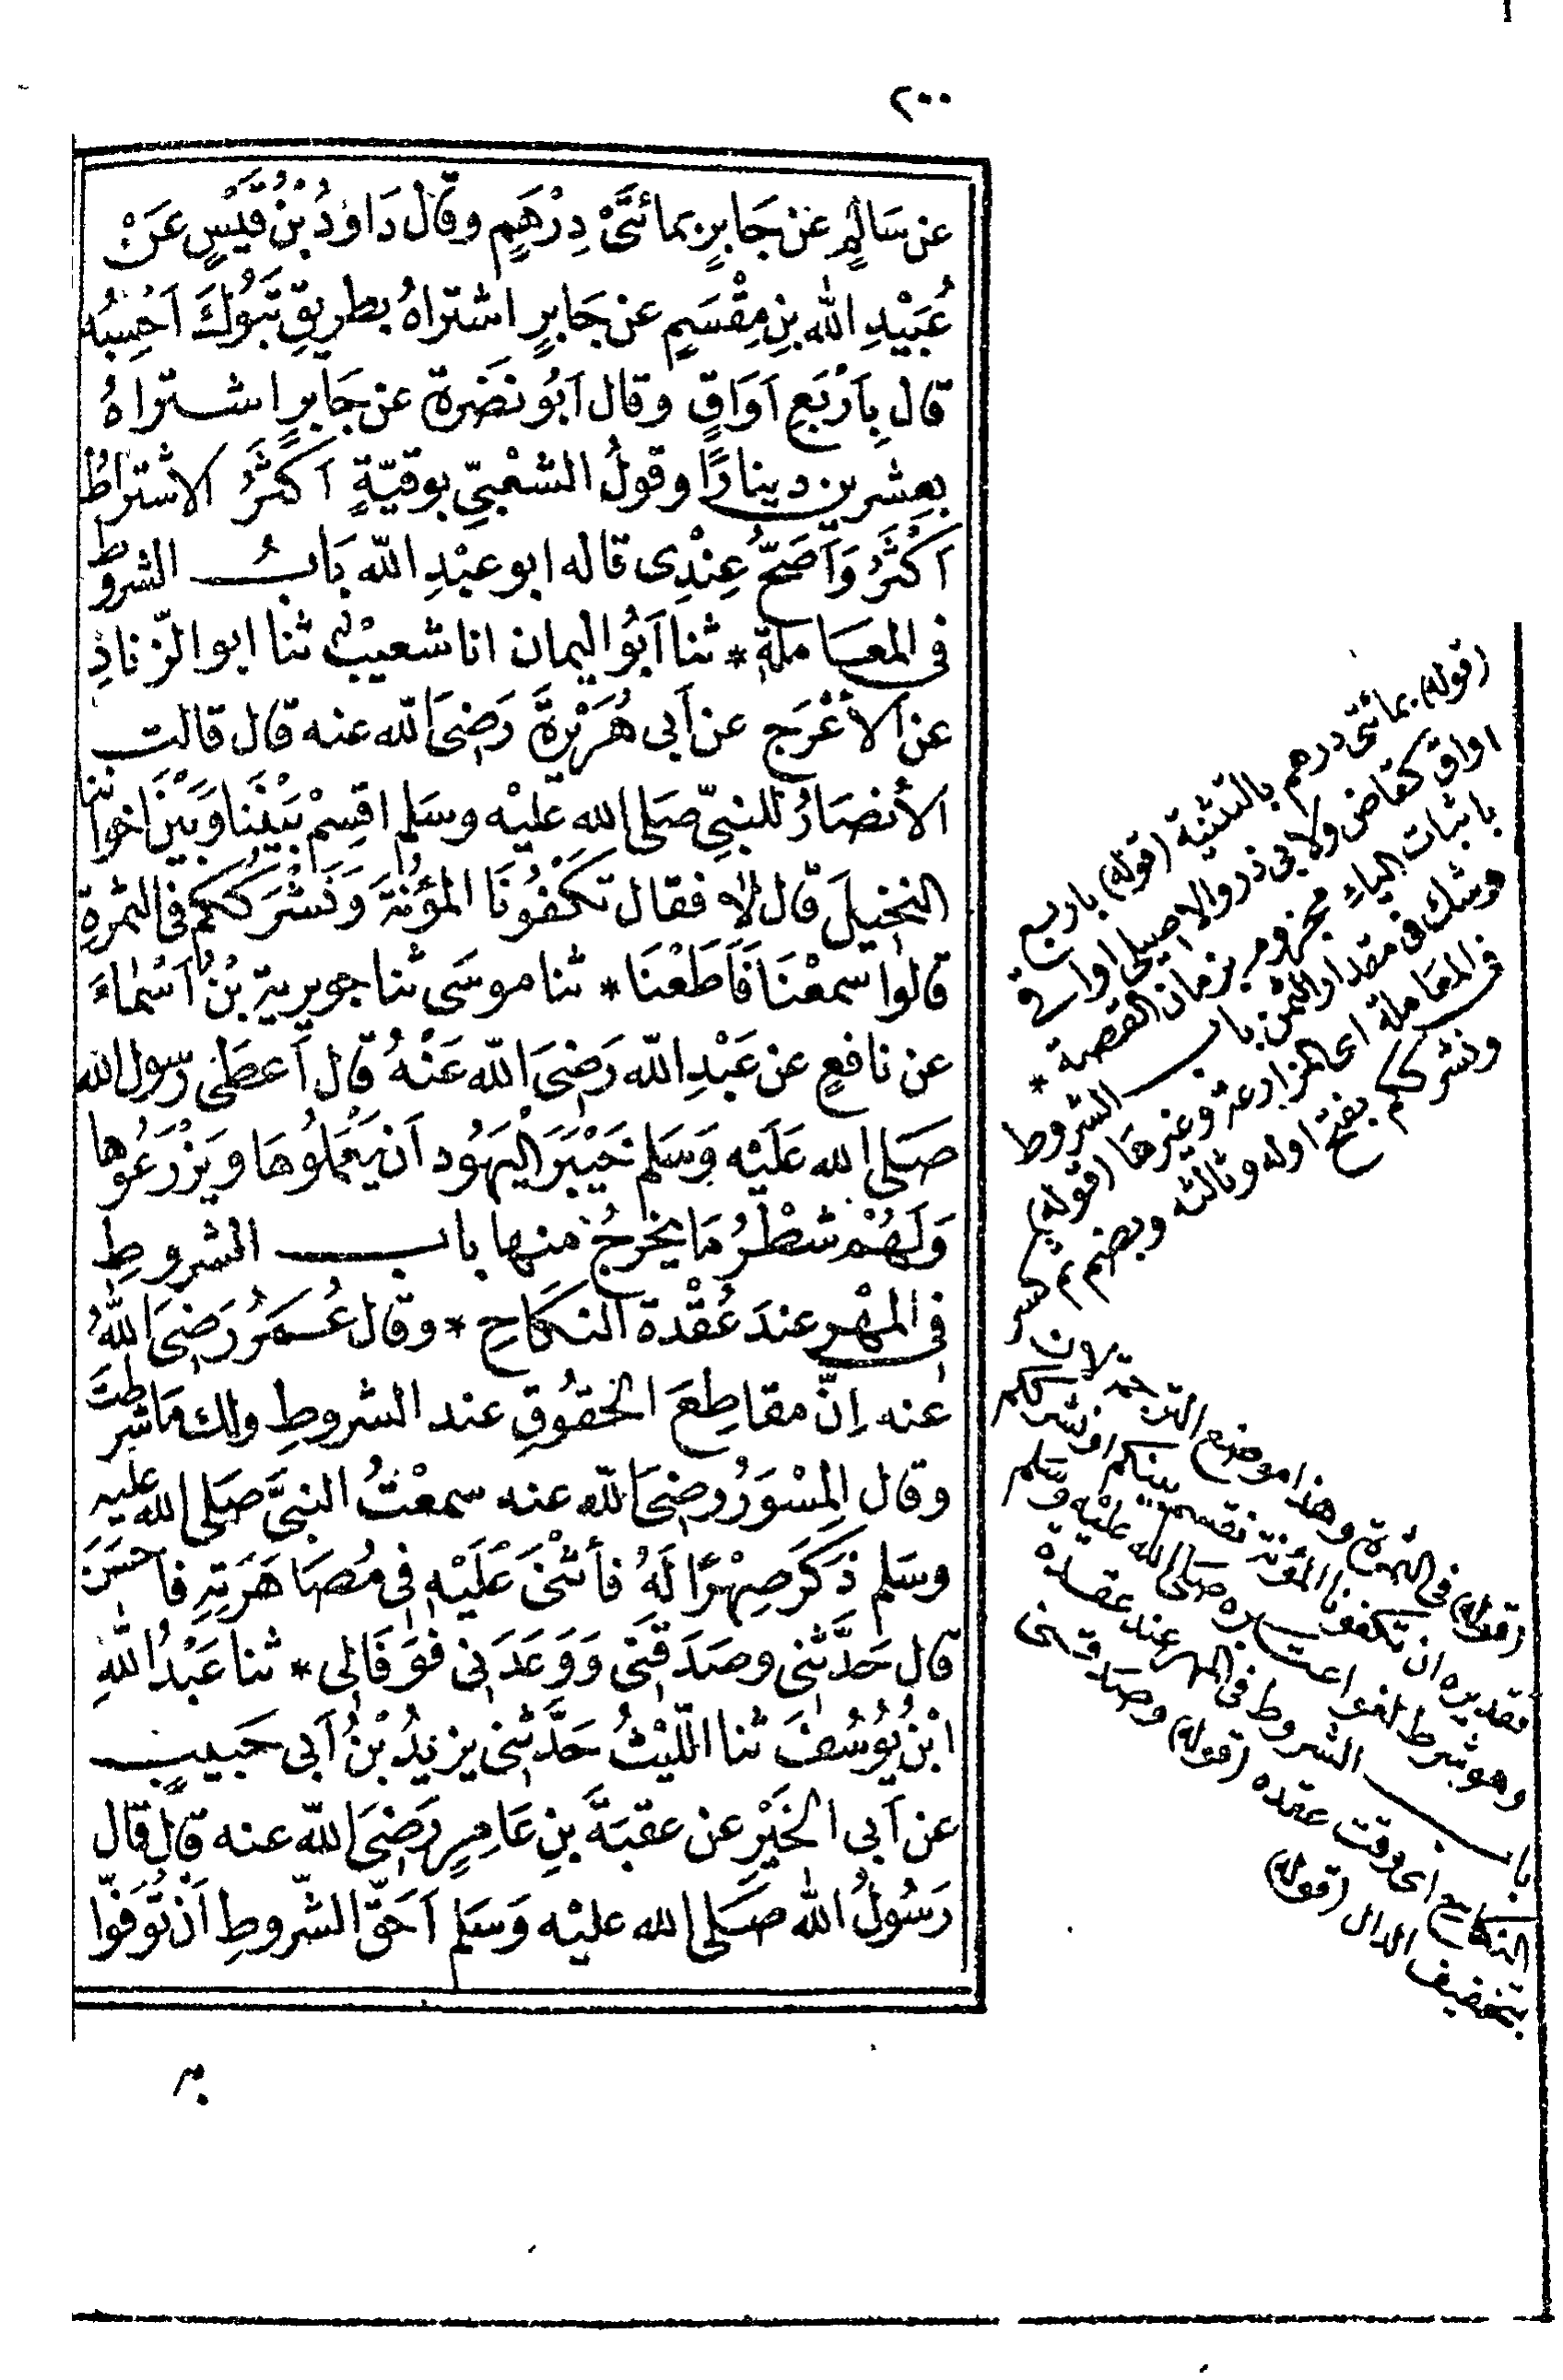 ٢٠٠
عن سَالِمٍ عَنْ جَابرٍ بمائتَىْ دِرْهَمٍ وقَال دَاوٗدُ بْنُ قَيْسٍ عَنْ
عُبَيْدِ الله بنِ مِقْسَمٍ عن جَابرٍ اشتراهُ بطريقِ تَبُوكَ اَحْسِبُه
قال بِاَرْبَعِ اَوَاقٍ وقال اَبُو نَضرة عن جَابرٍ اشتراهُ
بعشرين دينارًا وقولُ الشعْبىِّ بوقيّةٍ اَكثَرُ الاشتراطُ
اَكْثَرُ وَاَصَحُّ عِنْدِى قاله ابو عبْدِ الله بَابُ الشروط
فى المعاملةِ * ثنا اَبُو اليمان انا شعيبٌ ثنا ابو الزّنادِ
عن الاَعْرَج عن اَبى هُرَيْرةَ رَضىَ الله عنه قال قالت
الأنصَارُ للنبىِّ صَلى الله عليْه وسَلم اقسِمْ بَيْنَنا وَبَيْنَ اخواننا
النخيلَ قال لَا فقال تَكْفُونَا المؤُنَةَ وَنَشْرَككُم فى الثمرةِ
قالوا سمعْنَا فَاَطَعْنَا * ثنا موسَى ثنا جويرية بْنُ اَسْمَاءَ
عن نافعٍ عن عَبْدِ الله رَضىَ الله عَنْهُ قال اَعطَى رسول الله
صَلى الله عَلَيْه وَسَلم خَيْبَرَ اليهُود اَن يَعْمَلُوهَا ويَزْرَعُوها
وَلَهُمْ شطْرُ مَا يخرجُ منها باب الشروطِ
فى المهْرِ عندَ عُقْدة النكاحِ * وقال عُمَرُ رَضىَ اللهُ
عنه اِنّ مقاطِعَ الحقُوقِ عند الشروطِ ولك مَا شرطتَ
وقال المِسْوَرُ رضىَ الله عنه سمعْتُ النبىَّ صَلى الله عليه
وسَلم ذَكَرَ صِهْرًا لَهُ فأثْنَى عَلَيْه فى مُصَاهَرَتِهِ فاحْسَنَ
قال حَدَّثَنى وصَدَقَنى وَوَعَدَنى فوَفَالى * ثنا عَبْدُ اللهِ
ابْنُ يُوُسُفَ ثنا الليْثُ حَدَّثنى يزيدُ بْنُ اَبى حَبيبٍ
عن اَبى الخيْرِ عن عقبَةَ بنِ عَامِرٍ رَضىَ الله عنه قال قال
رَسُولُ الله صَلى الله عليْه وَسَلم اَحَقّ الشّروطِ اَنْ تُوَفّوا
(قوله) بمائتى درهم بالتثنية (قوله) باربع
اواق كقاض ولابى ذر والاصيلى اواقى
باثبات الياء مجزوم بزمان القصة *
وشك فى مقدار الثمن باب الشروط
فى المعاملة اى المزارعة وغيرها (قوله)
ونشرككم بفتح اوله وثالثه وبضم ثم كسر
(قوله) فى الثمرة وهذا موضع الترجمة لان
تقديره ان تكفونا المؤنة نقسم بينكم او نشرككم
وهو شرط لغوى اعتبره صلى الله عليه وسلم
باب الشروط فى المهر عند عقدة
النكاح اى وقت عقده (قوله) وصدقنى
بتخفيف الدال (قوله)